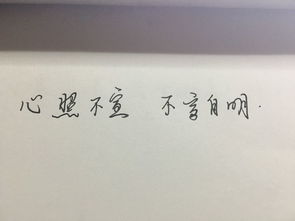 心照不宣 不言自明.